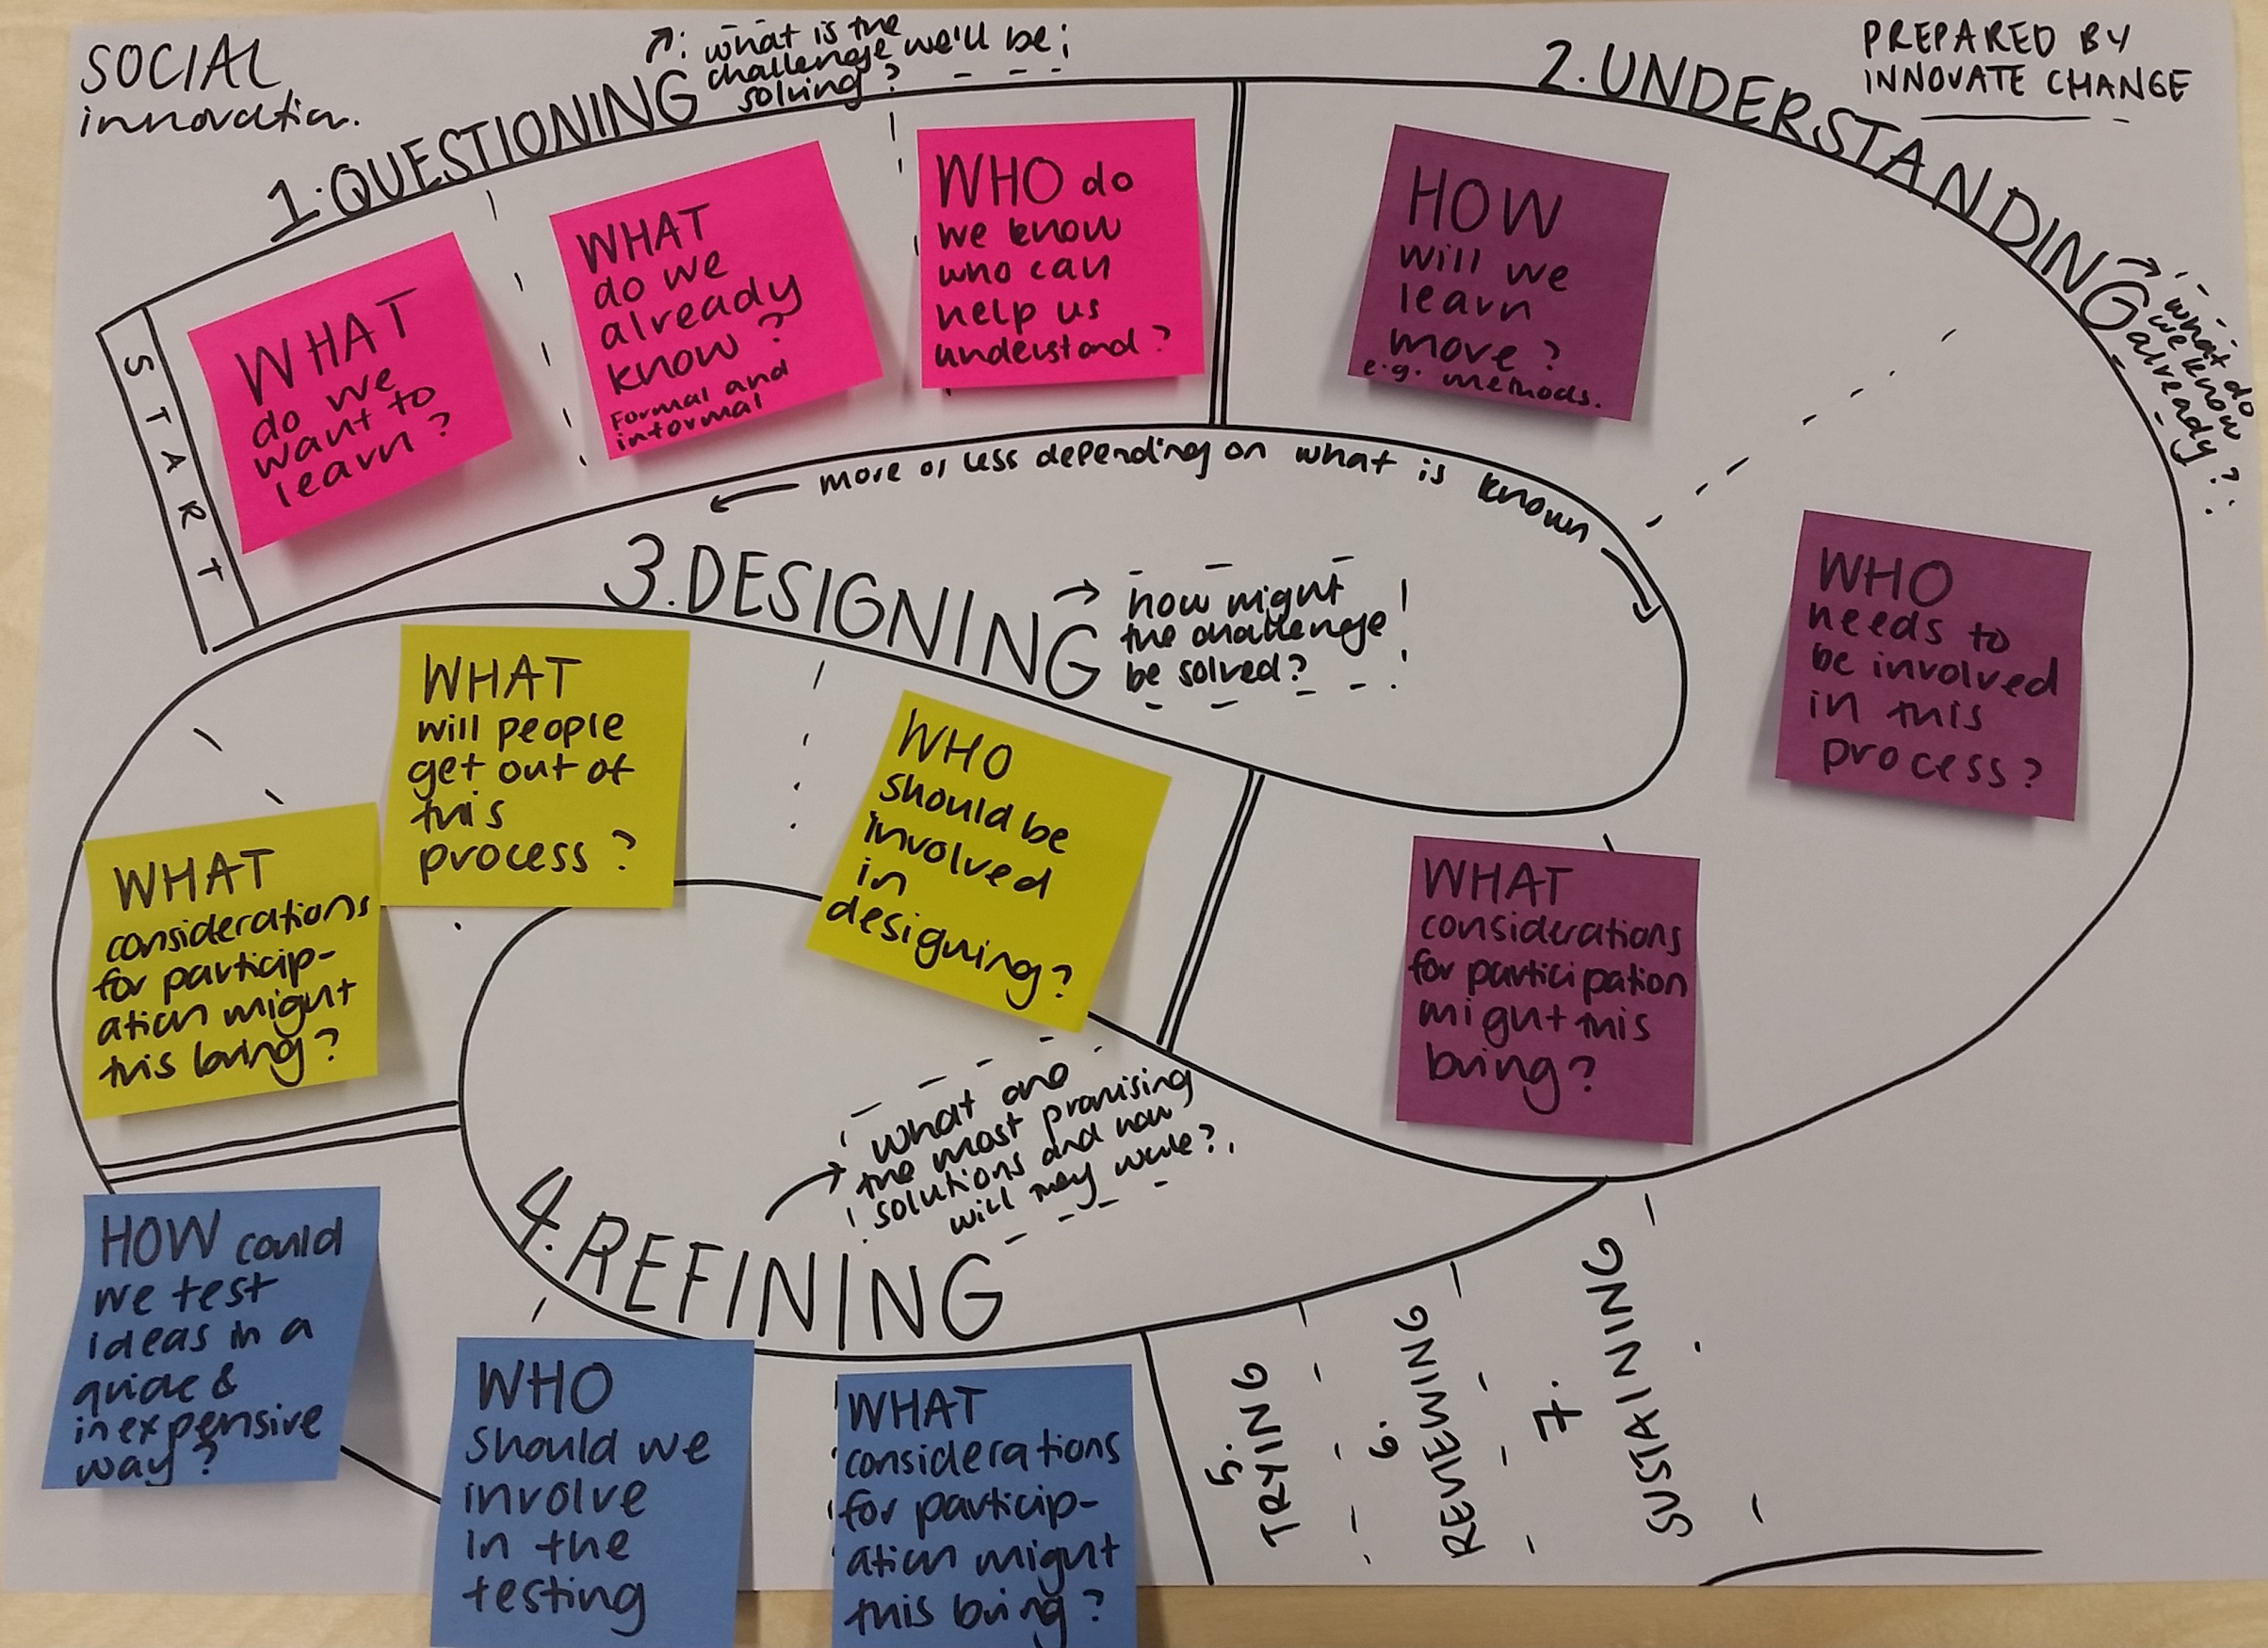 SOCIAL
innovation.
PREPARED BY
INNOVATE CHANGE
1. QUESTIONING
what is the
challenge we'll be
solving?
START
WHAT
do we
want to
learn?
WHAT
do we
already
know?
Formal and
informal
WHO do
we know
who can
help us
understand?
2. UNDERSTANDING
what do
we know
already?
HOW
will we
learn
more?
e.g. methods.
WHO
needs to
be involved
in this
process?
WHAT
considerations
for participation
might this
bring?
more or less depending on what is known
3. DESIGNING
how might
the challenge
be solved?
WHO
should be
involved
in
designing?
WHAT
will people
get out of
this
process?
WHAT
considerations
for particip-
ation might
this bring?
4. REFINING
what are
the most promising
solutions and how
will they work?
HOW could
we test
ideas in a
quick &
inexpensive
way?
WHO
should we
involve
in the
testing
WHAT
considerations
for particip-
ation might
this bring?
5.
TRYING
6.
REVIEWING
7.
SUSTAINING